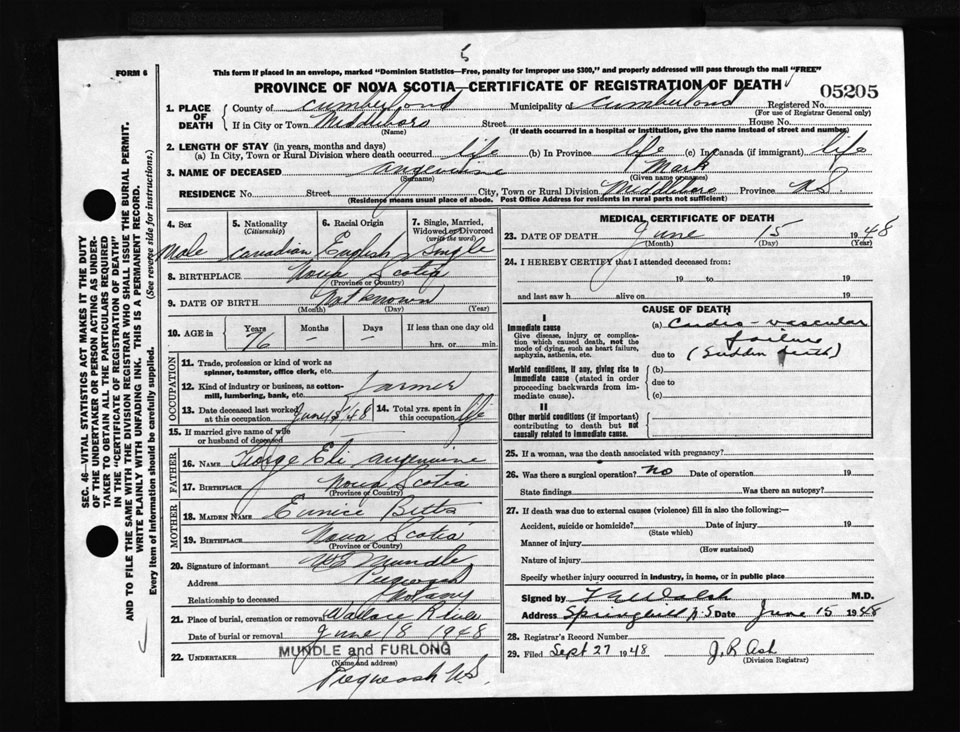 5
FORM 6
This form if placed in an envelope, marked "Dominion Statistics—Free, penalty for improper use $300," and properly addressed will pass through the mail "FREE"
PROVINCE OF NOVA SCOTIA—CERTIFICATE OF REGISTRATION OF DEATH
05205
1. PLACE OF DEATH
County of Cumberland Municipality of Cumberland Registered No.
(For use of Registrar General only)
If in City or Town Middleboro Street House No.
(Name) (If death occurred in a hospital or institution, give the name instead of street and number)
2. LENGTH OF STAY (in years, months and days)
(a) In City, Town or Rural Division where death occurred life (b) In Province life (c) In Canada (if immigrant) life
3. NAME OF DECEASED Angevine Mark
(Surname) (Given name or names)
RESIDENCE No. Street City, Town or Rural Division Middleboro Province N.S.
(Residence means usual place of abode. Post Office Address for residents in rural parts not sufficient)
4. Sex
Male
5. Nationality
(Citizenship)
Canadian
6. Racial Origin
English
7. Single, Married,
Widowed or Divorced
(write the word)
Single
8. BIRTHPLACE Nova Scotia
(Province or Country)
9. DATE OF BIRTH Not known
(Month) (Day) (Year)
10. AGE in Years Months Days If less than one day old
76 — — hrs. or min.
OCCUPATION
11. Trade, profession or kind of work as
spinner, teamster, office clerk, etc.
12. Kind of industry or business, as cotton-
mill, lumbering, bank, etc. Farmer
13. Date deceased last worked
at this occupation June 15/48
14. Total yrs. spent in
this occupation life
15. If married give name of wife
or husband of deceased —
FATHER
16. NAME George Eli Angevine
17. BIRTHPLACE Nova Scotia
(Province or Country)
MOTHER
18. MAIDEN NAME Eunice Betts
19. BIRTHPLACE Nova Scotia
(Province or Country)
20. Signature of informant Mundle
Address Pugwash
Relationship to deceased
21. Place of burial, cremation or removal Wallace River
Date of burial or removal June 18 1948
22. UNDERTAKER MUNDLE and FURLONG
(Name and address)
Pugwash N.S.
MEDICAL CERTIFICATE OF DEATH
23. DATE OF DEATH June 15 1948
(Month) (Day) (Year)
24. I HEREBY CERTIFY that I attended deceased from:
19 to 19
and last saw h alive on 19
CAUSE OF DEATH
I
Immediate cause
Give disease, injury or complica-
tion which caused death, not the
mode of dying, such as heart failure,
asphyxia, asthenia, etc.
(a) Cardio-vascular
failure
due to (Sudden death)
Morbid conditions, if any, giving rise to
immediate cause (stated in order
proceeding backwards from im-
mediate cause).
(b)
due to
(c)
II
Other morbid conditions (if important)
contributing to death but not
causally related to immediate cause.
25. If a woman, was the death associated with pregnancy?
26. Was there a surgical operation? No Date of operation 19
State findings Was there an autopsy?
27. If death was due to external causes (violence) fill in also the following:—
Accident, suicide or homicide? Date of injury 19
(State which)
Manner of injury
(How sustained)
Nature of injury
Specify whether injury occurred in industry, in home, or in public place
Signed by Walsh M.D.
Address Springhill N.S. Date June 15 1948
28. Registrar's Record Number
29. Filed Sept 27 1948 J. R. Ash
(Division Registrar)
SEC. 46—VITAL STATISTICS ACT MAKES IT THE DUTY
OF THE UNDERTAKER OR PERSON ACTING AS UNDER-
TAKER TO OBTAIN ALL THE PARTICULARS REQUIRED
IN THE "CERTIFICATE OF REGISTRATION OF DEATH"
AND TO FILE THE SAME WITH THE DIVISION REGISTRAR WHO SHALL ISSUE THE BURIAL PERMIT.
WRITE PLAINLY WITH UNFADING INK. THIS IS A PERMANENT RECORD.
Every item of Information should be carefully supplied. (See reverse side for instructions.)